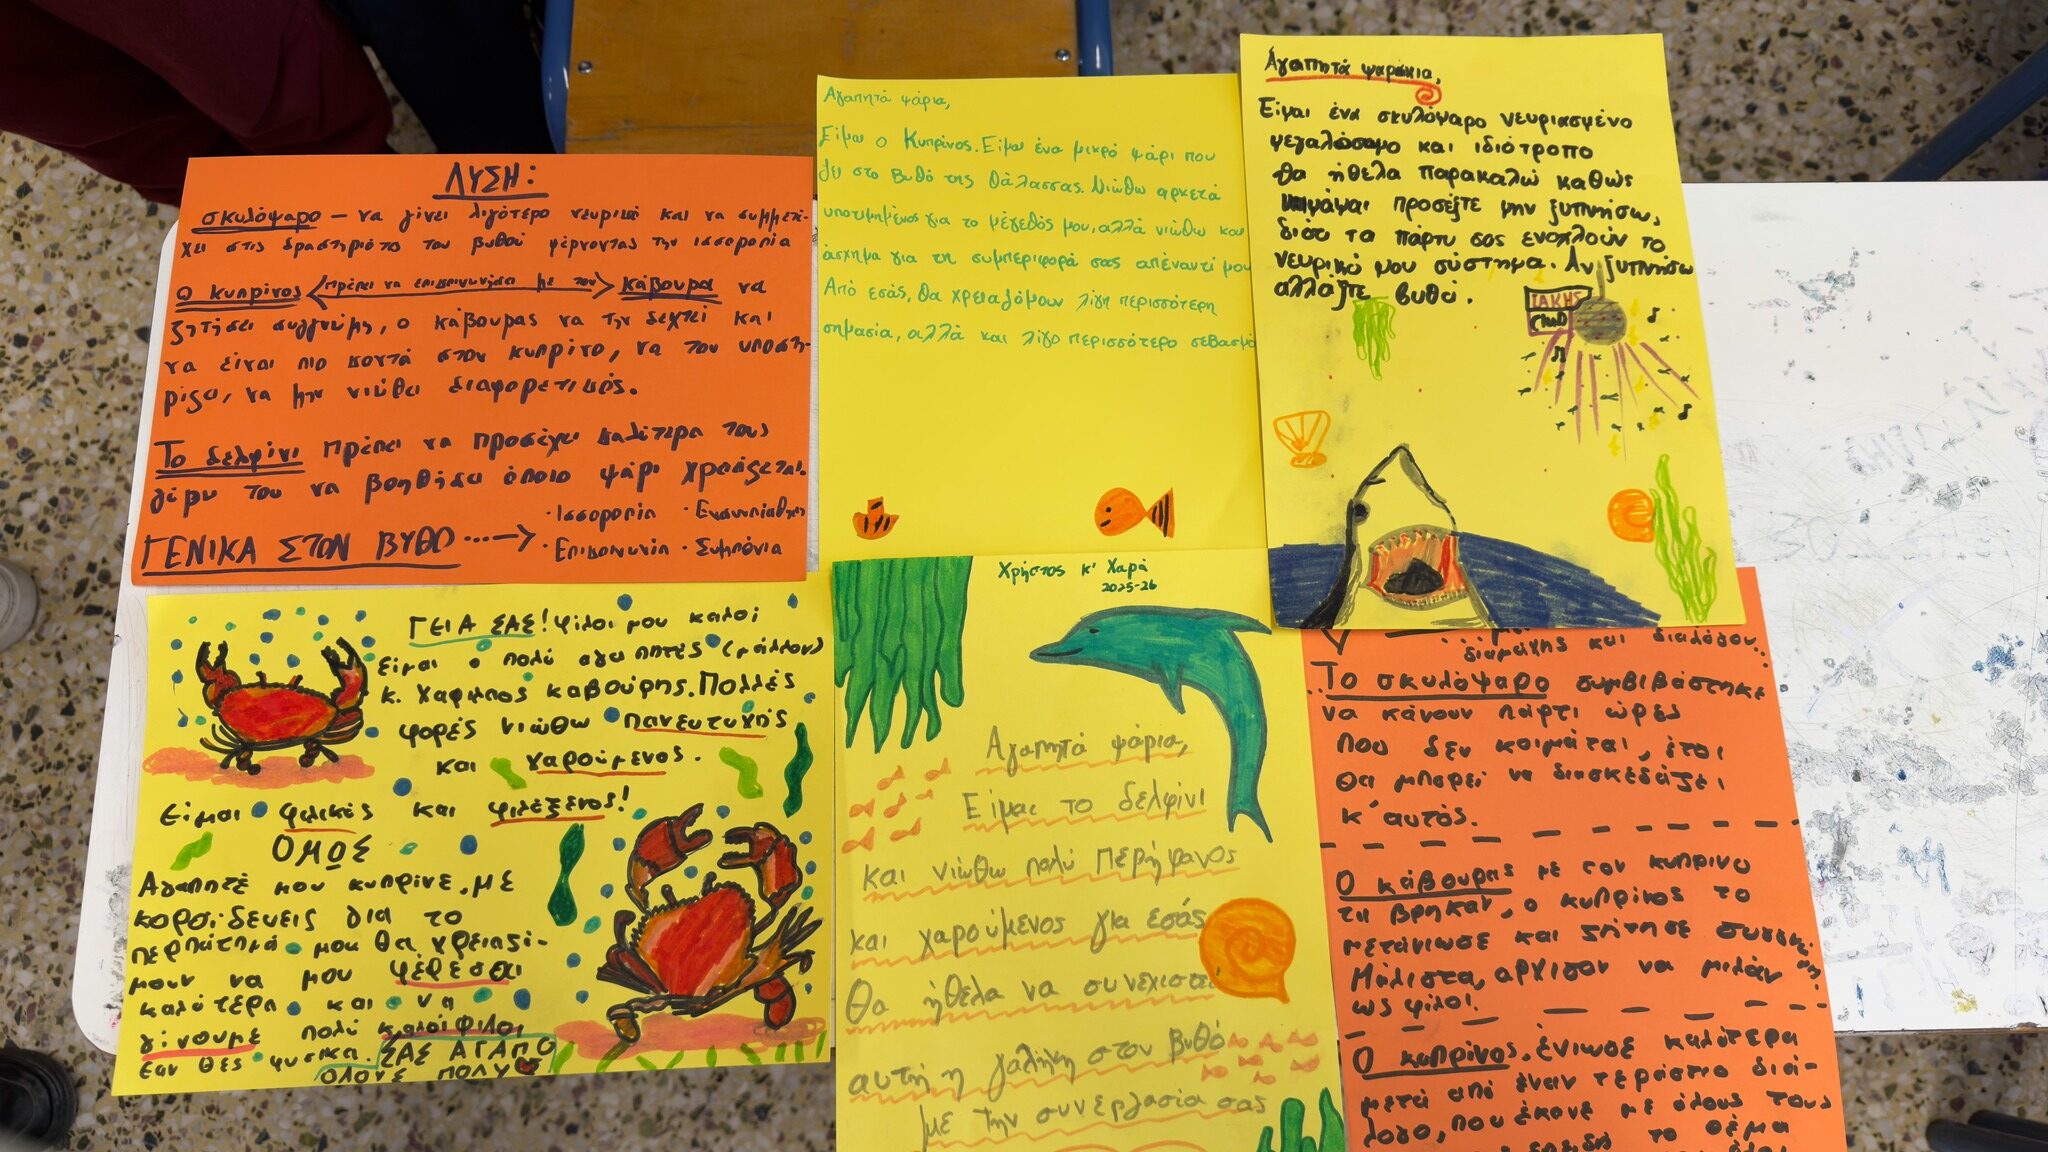 ΛΥΣΗ:
σκυλόψαρο – να γίνει λιγότερο νευρικό και να συμμετέ-
χει στις δραστηριότητες του βυθού φέρνοντας την ισσοροπία
Ο κυπρίνος πρέπει να επικοινωνήσει με τον κάβουρα να
ζητήσει συγγνώμη, ο κάβουρας να την δεχτεί και
να είναι πιο κοντά στον κυπρίνο, να τον υποστη-
ρίζει, να μην νιώθει διαφορετικός.
Το δελφίνι πρέπει να προσέχει καλύτερα τους
να βοηθήσει όποιο ψάρι χρειάζεται.
ΓΕΝΙΚΑ ΣΤΟΝ ΒΥΘΟ ....→
·Ισσοροπία ·Ενσυναίσθηση
·Επικοινωνία ·Συμπόνια
Αγαπητά ψάρια,
Είμαι ο Κυπρίνος. Είμαι ένα μικρό ψάρι που
ζει στο βυθό της θάλασσας. Νιώθω αρκετά
υποτιμημένος για το μέγεθός μου, αλλά νιώθω και
άσχημα για τη συμπεριφορά σας απέναντί μου
Από εσάς, θα χρειαζόμουν λίγη περισσότερη
σημασία, αλλά και λίγο περισσότερο σεβασμό
Αγαπητά ψαράκια,
Είμαι ένα σκυλόψαρο νευριασμένο
μεγαλόσωμο και ιδιότροπο
θα ήθελα παρακαλώ καθώς
προσέξτε μην ξυπνήσω,
διότι τα πάρτυ σας ενοχλούν το
νευρικό μου σύστημα. Αν ξυπνήσω
αλλάξτε βυθό.
ΣΑΚΗΣ
CluB
ΓΕΙΑ ΣΑΣ! φίλοι μου καλοί
είμαι ο πολύ αγαπητός (μάλλον)
κ. Χαρωπος καβούρης. Πολλές
φορές νιώθω πανευτυχής
και χαρούμενος.
Είμαι φιλικός και φιλόξενος!
ΟΜΩΣ
Αγαπητέ μου κυπρίνε, με
κοροϊδεύεις για το
περπάτημά μου θα χρειαζό-
μουν να μου φέρεσαι
καλύτερα και να
γίνουμε πολύ καλοί φίλοι
εαν θες φυσικα. ΣΑΣ ΑΓΑΠΩ
ΟΛΟΥΣ ΠΟΛΥ
Χρήστος κ' Χαρά
2025-26
Αγαπητά ψάρια,
Είμαι το δελφίνι
και νιώθω πολύ περήφανος
και χαρούμενος για εσάς
Θα ήθελα να συνεχιστεί
αυτή η γαλήνη στον βυθό
με την συνεργασία σας
διαμάχης και διαλόγου..
..Το σκυλόψαρο συμβιβάστηκε
να κάνουν πάρτι ώρες
που δεν κοιμάται, έτσι
θα μπορεί να διασκεδάζει
κ' αυτός.
Ο κάβουρας με τον κυπρίνο
τα βρήκαν, ο κυπρίνος το
μετάνιωσε και ζήτησε συγγνώ-
μη. Μάλιστα, άρχισαν να μιλάν
ως φίλοι.
Ο κυπρίνος, ένιωσε καλύτερα
μετά από έναν τεράστιο διά-
λογο, που έκανε με όλους τους
επειδή το θέμα